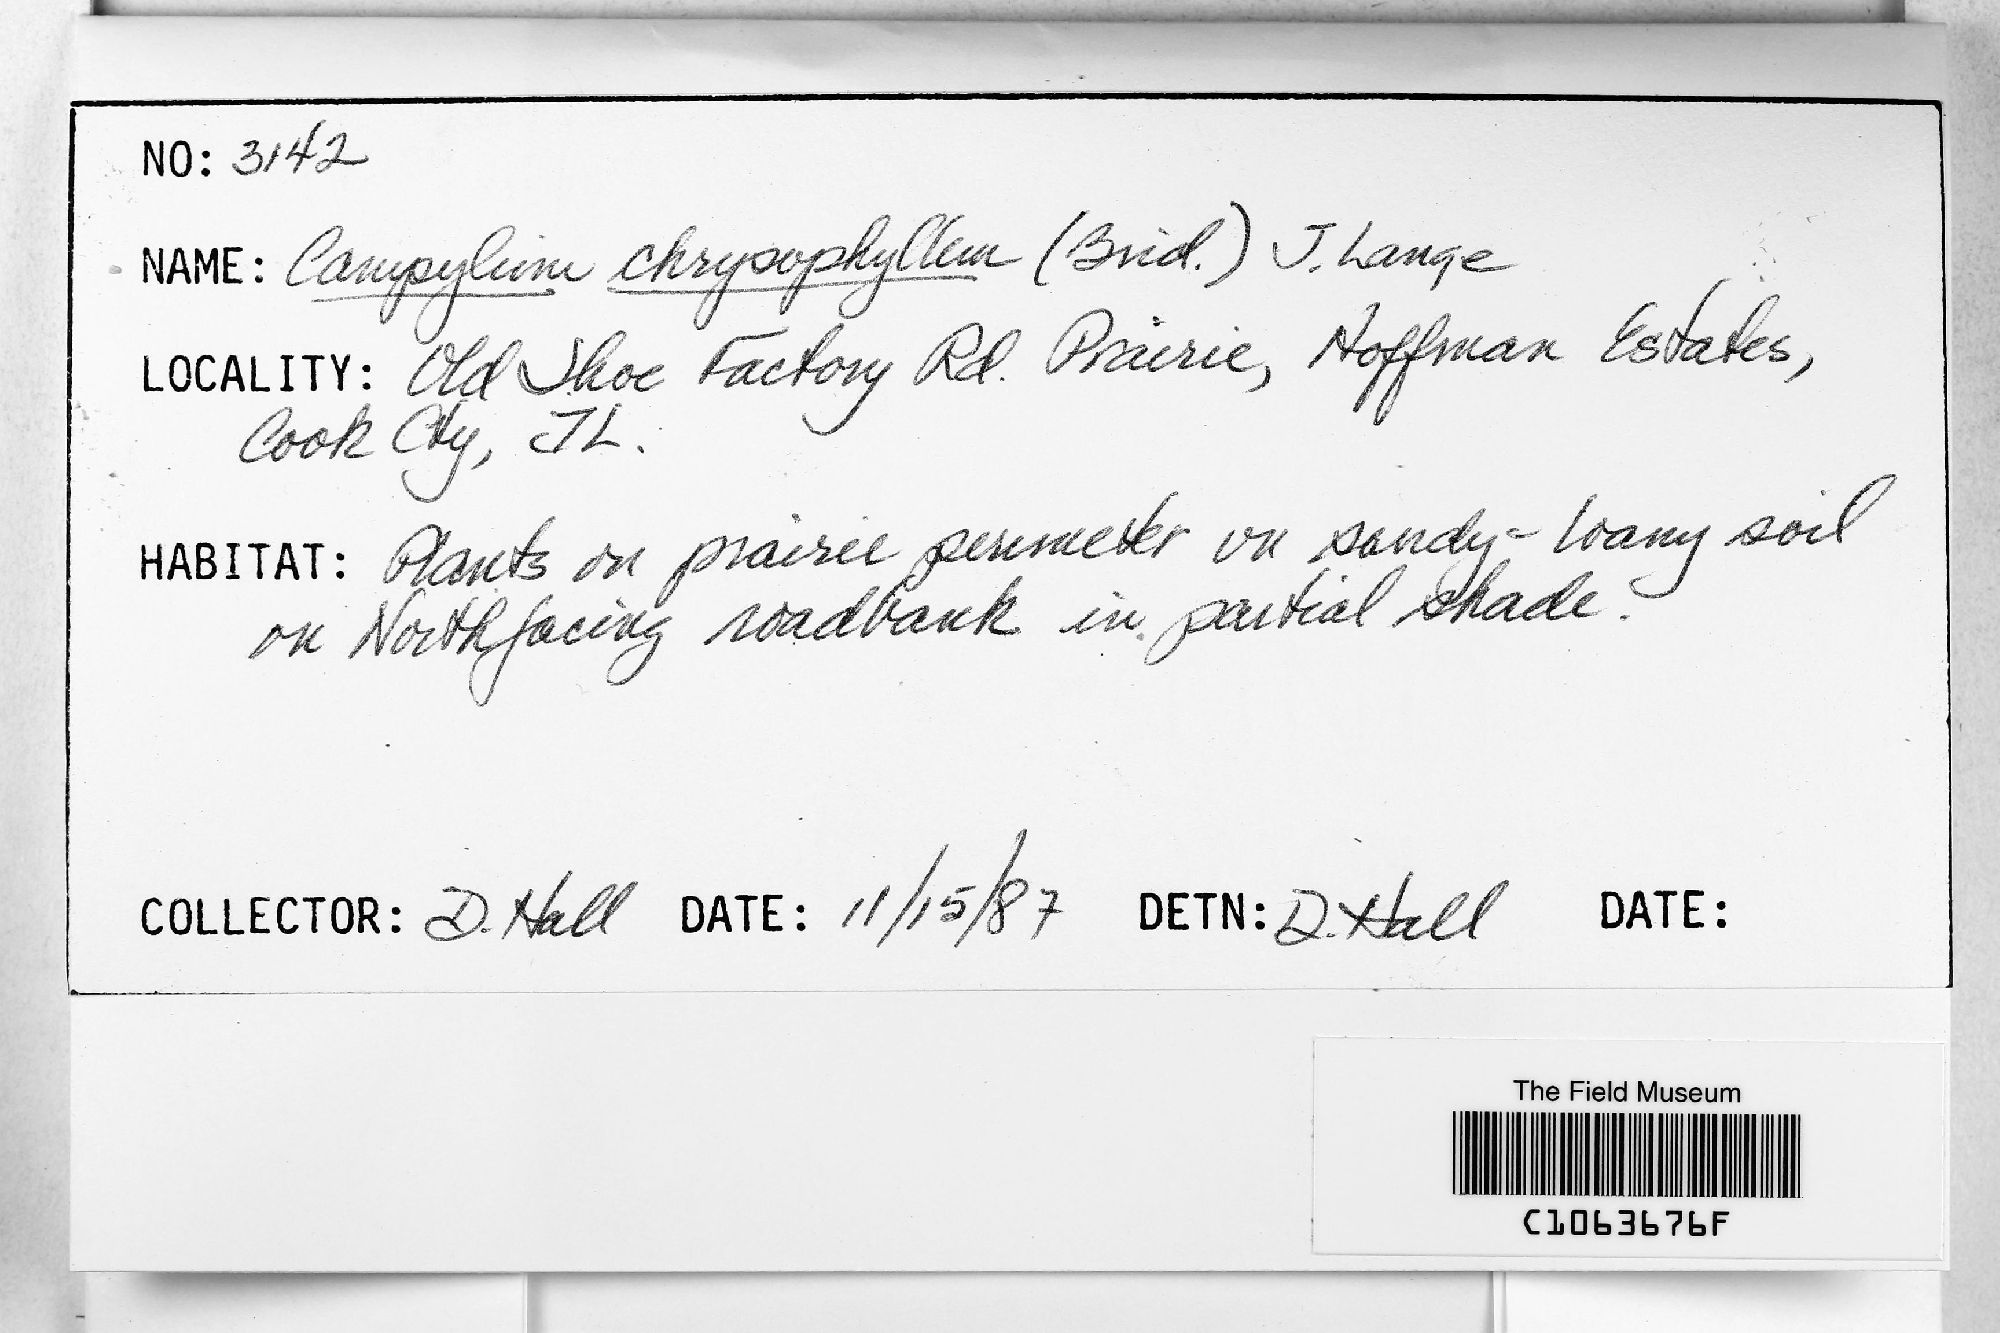 NO: 3142
NAME: Campylium chrysophyllum (Brid.) J. Lange
LOCALITY: Old Shoe Factory Rd. Prairie, Hoffman Estates,
Cook Cty, IL.
HABITAT: Plants on prairie perimeter on sandy-loamy soil
on North facing roadbank in partial shade.
COLLECTOR: D. Hall DATE: 11/15/87 DETN: D. Hall DATE:
The Field Museum
C1063676F